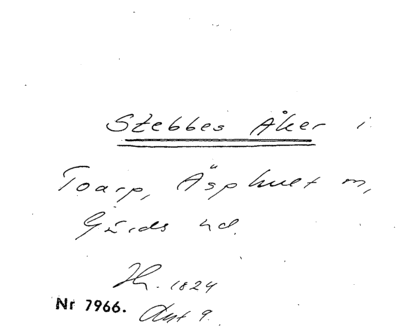 Stebbes Åker i
Toarp, Äsphult sn,
Gärds hd.
Jh. 1824
Nr 7966. Akt 9.